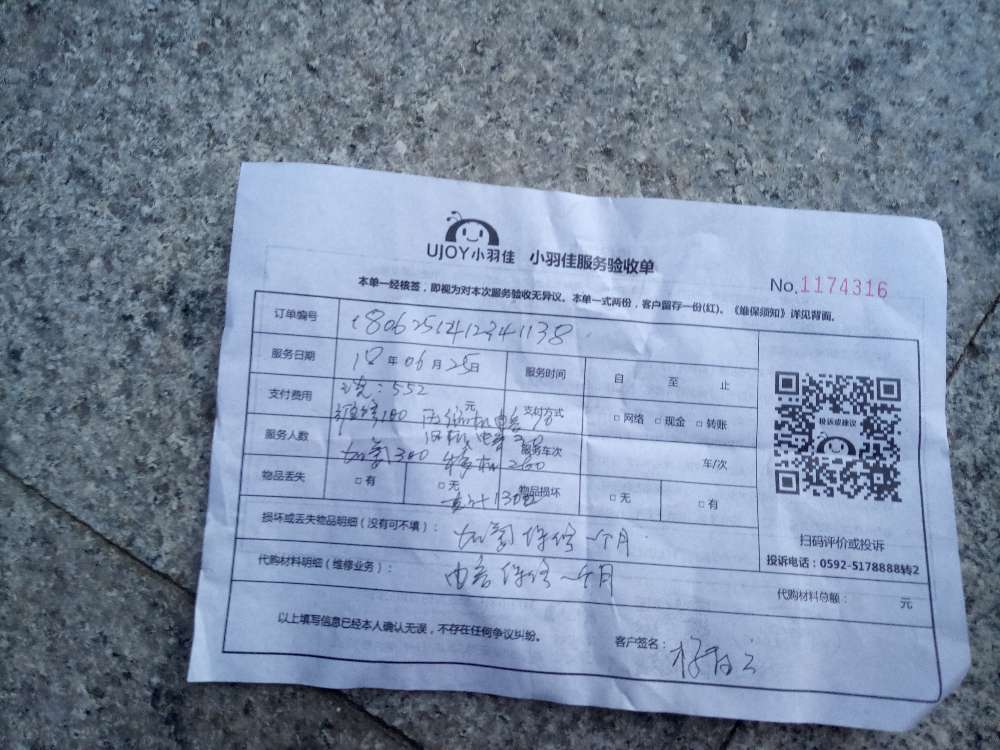 UJOY小羽佳 小羽佳服务验收单
No.1174316
本单一经核签，即视为对本次服务验收无异议。本单一式两份，客户留存一份(红)。《维保须知》详见背面。
订单编号 1806251412341138
服务日期 18年06月25日 服务时间 自 至 止
支付费用 552 元 支付方式 □网络 □现金 □转账
180
服务人数 服务车次 车/次
加氟300 260
物品丢失 □有 □无 物品损坏 □无 □有
损坏或丢失物品明细（没有可不填）： 加氟保修一个月
代购材料明细（维修业务）： 保修一个月
代购材料总额： 元
投诉或建议
扫码评价或投诉
投诉电话：0592-5178888转2
以上填写信息已经本人确认无误，不存在任何争议纠纷。 客户签名：